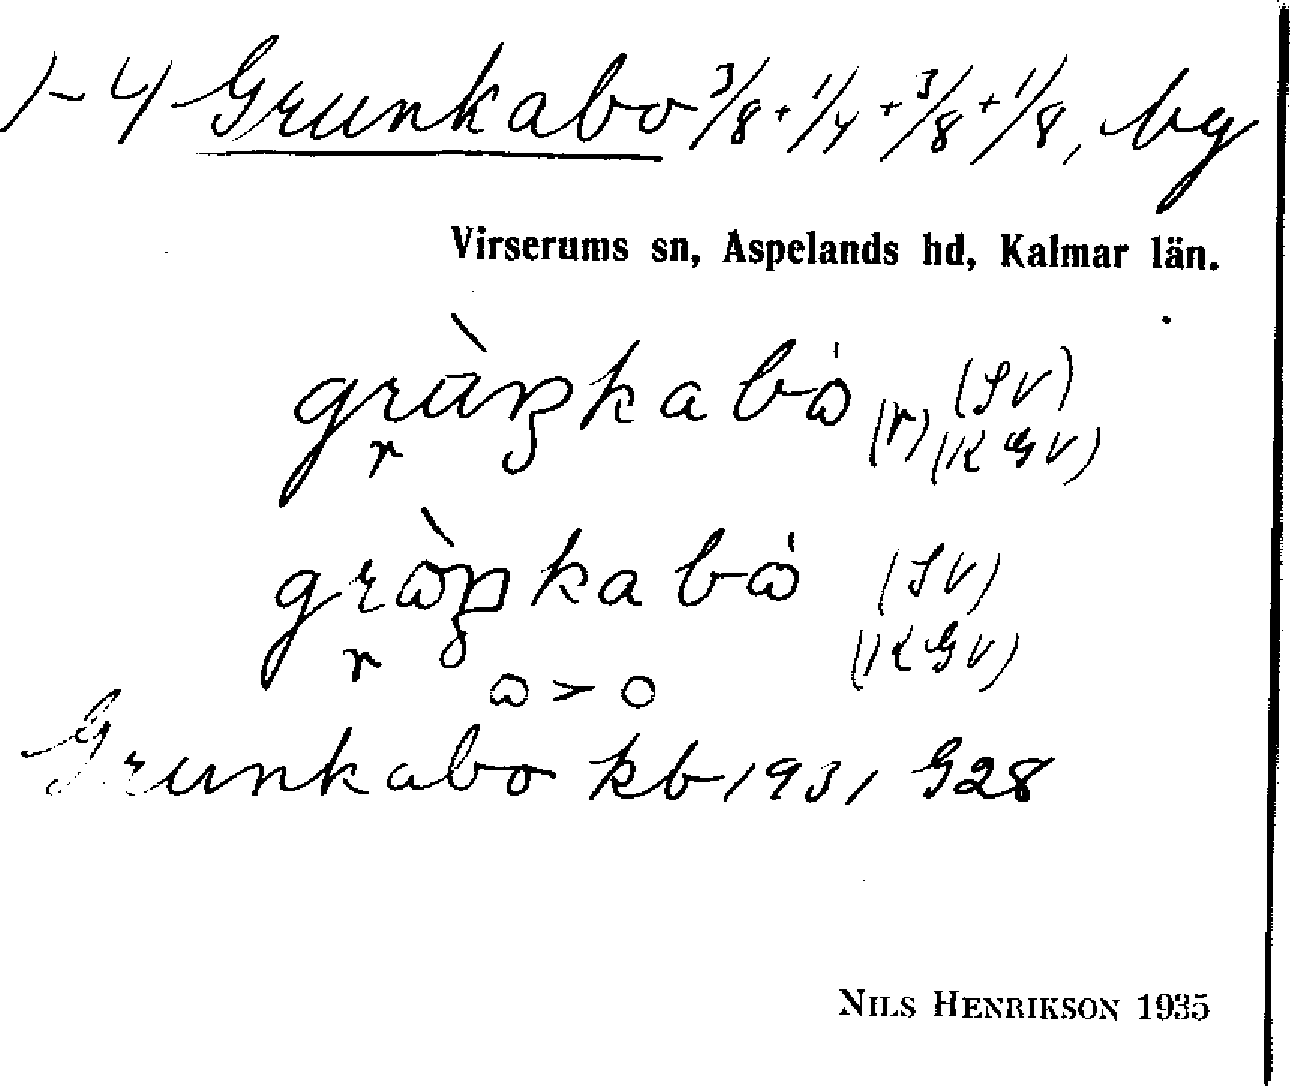 1-4 Grunkabo 3/8 + 1/4 + 3/8 + 1/8, bg
Virserums sn, Aspelands hd, Kalmar län.
grùŋkabó (r) (SV)
r (KGV)
gròŋkabó (SV)
r (KGV)
ɷ > o
Grunkabo kb 1931 G28
NILS HENRIKSON 1935